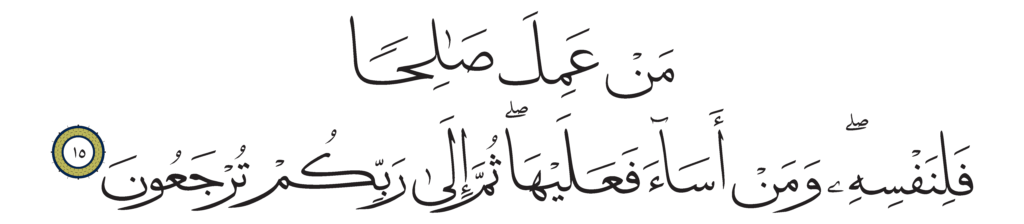 مَنْ عَمِلَ صَٰلِحًا
فَلِنَفْسِهِۦۖ وَمَنْ أَسَآءَ فَعَلَيْهَاۖ ثُمَّ إِلَىٰ رَبِّكُمْ تُرْجَعُونَ ١٥